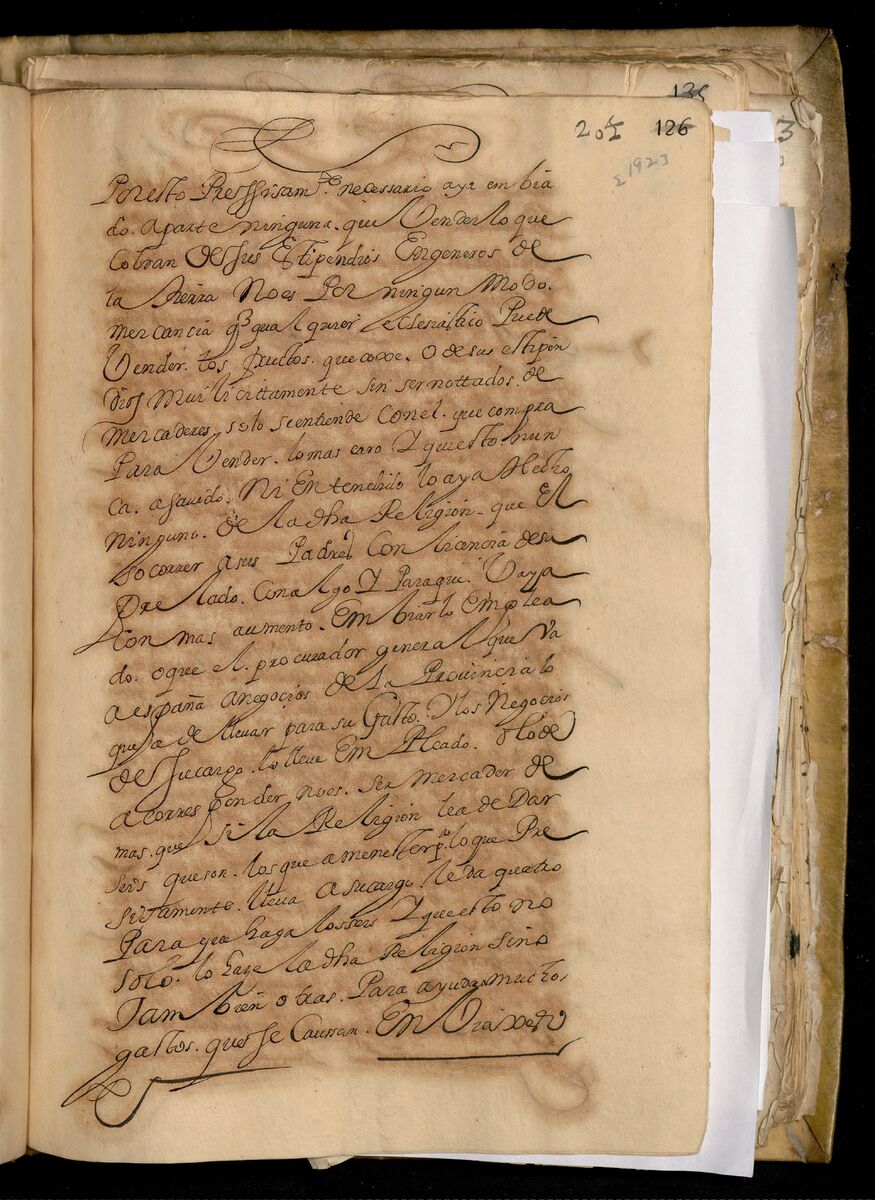 135
20 126
3
1923
Por esto Pressisam.te necessario aya embia
do. aparte ninguna. que Vender lo que
Cobran de sus Estipendios En generos de
la tierra No es Por ningun Modo.
mercancia q̃ qual quier eclesiastico Puede
Vender. los fructos. que coxe. O de sus estipen
dios Mui licittamente sin ser nottados. de
Mercaderes. solo se entiende Con el. que compra
Para Vender. lo mas caro Y que esto. nun
ca. a sauido. Ni Entendido lo aya Hecho
Ninguno. de la dha Religion. que El
socorrer a sus Padres Con licencia de su
Prelado. Con algo Y Para que. Vaya
Con mas aumento. Embiarlo Emplea
do. o que el. procurador general que Va
a españa a negocios de la Prouincia lo
que a de lleuar para su Gasto. Y los Negocios
de su cargo. lo lleue Em Pleado. o lo de
a corresponder no es. ser mercader de
mas. que si la Religion le a de Dar
seis que son. los que a menester p.a lo que Pre
sisamente. lleua a su cargo. le da quatro
Para que haga los seis Y que esto no
solo. lo haze la dha Religion sino
Tambien otras. Para ayuda muchos
gastos. que se Caussan. En